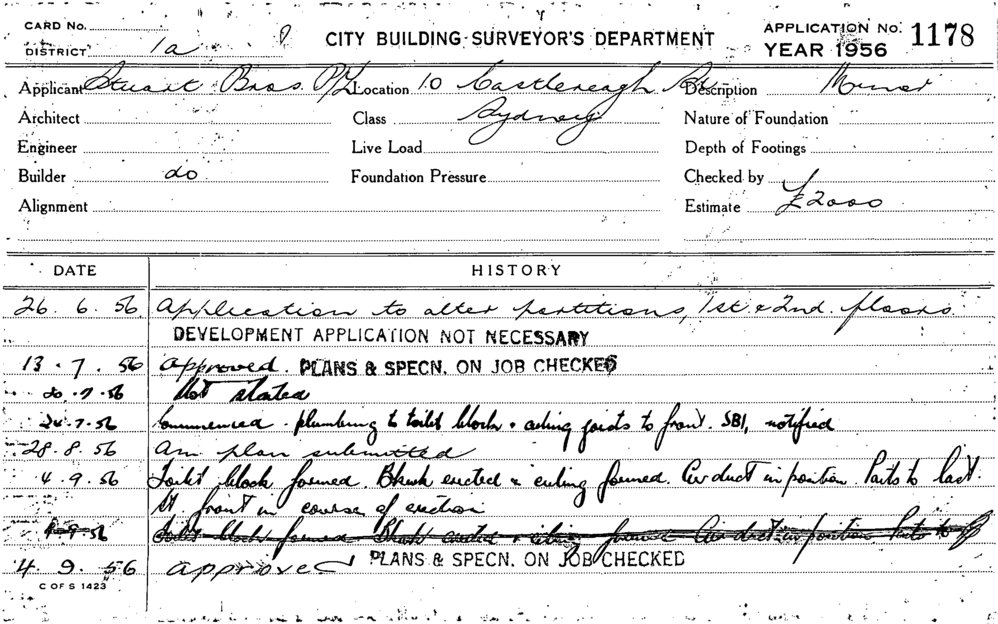 CARD No.
DISTRICT 1a
CITY BUILDING SURVEYOR'S DEPARTMENT
APPLICATION No. 1178
YEAR 1956
Applicant Stuart Bros. P/L Location 10 Castlereagh St Description Minor
Architect Class Sydney Nature of Foundation
Engineer Live Load Depth of Footings
Builder do Foundation Pressure Checked by
Alignment Estimate £2000
DATE HISTORY
26. 6. 56 Application to alter partitions, 1st & 2nd. floors.
DEVELOPMENT APPLICATION NOT NECESSARY
13. 7. 56 Approved. PLANS & SPECN. ON JOB CHECKED
20. 7. 56 Not started
24. 7. 56 Commenced. plumbing to toilet block & ceiling joists to front. SBI, notified
28. 8. 56 Am plan submitted
4. 9. 56 Toilet block formed. erected & ceiling formed. Air duct in position. to
at front in course of erection
9. 56 Toilet block formed erected & ceiling formed Air duct in position to
4. 9. 56 approved PLANS & SPECN. ON JOB CHECKED
C OF S 1423